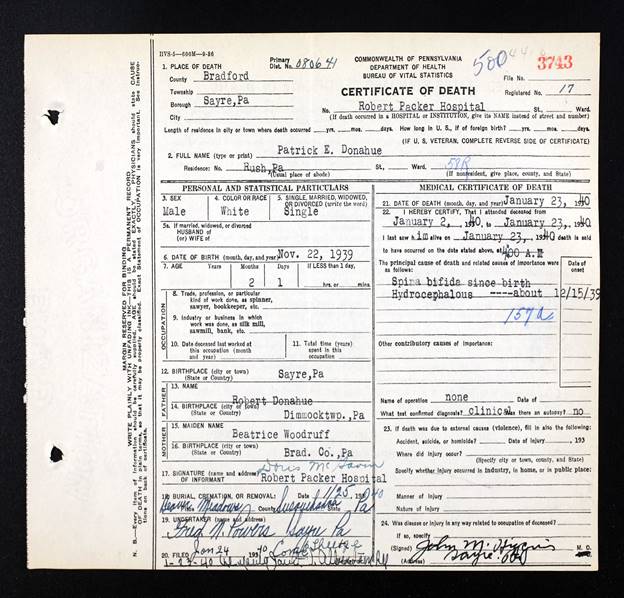 HVS-5—500M—9-36
COMMONWEALTH OF PENNSYLVANIA
DEPARTMENT OF HEALTH
BUREAU OF VITAL STATISTICS
CERTIFICATE OF DEATH
Primary Dist. No. 080641
File No. 3743
Registered No. 17
1. PLACE OF DEATH
County Bradford
Township
Borough Sayre,Pa
City
No. Robert Packer Hospital St., Ward.
(If death occurred in a HOSPITAL or INSTITUTION, give its NAME instead of street and number)
Length of residence in city or town where death occurred yrs. mos. days. How long in U. S., if of foreign birth? yrs. mos. days.
(IF U. S. VETERAN, COMPLETE REVERSE SIDE OF CERTIFICATE)
2. FULL NAME (type or print) Patrick E. Donahue
58R
Residence: No. Rush,Pa St., Ward.
(Usual place of abode) (If nonresident, give place, county, and State)
PERSONAL AND STATISTICAL PARTICULARS
3. SEX Male
4. COLOR OR RACE White
5. SINGLE, MARRIED, WIDOWED, OR DIVORCED (write the word) Single
5a. If married, widowed, or divorced
HUSBAND of
(or) WIFE of
6. DATE OF BIRTH (month, day, and year) Nov. 22, 1939
7. AGE Years Months Days If LESS than 1 day,
2 1 hrs. or mins.
OCCUPATION
8. Trade, profession, or particular
kind of work done, as spinner,
sawyer, bookkeeper, etc.
9. Industry or business in which
work was done, as silk mill,
sawmill, bank, etc.
10. Date deceased last worked at
this occupation (month
and year)
11. Total time (years)
spent in this
occupation
12. BIRTHPLACE (city or town) Sayre,Pa
(State or Country)
FATHER
13. NAME Robert Donahue
14. BIRTHPLACE (city or town) Dimmocktwp.,Pa
(State or Country)
MOTHER
15. MAIDEN NAME Beatrice Woodruff
16. BIRTHPLACE (city or town) Brad. Co.,Pa
(State or Country)
17. SIGNATURE (name and address)
OF INFORMANT Robert Packer Hospital
18. BURIAL, CREMATION, OR REMOVAL: Date 1/25 1940
Place Beaver Meadows County Susquehanna State Pa
19. UNDERTAKER Fred N. Powers Sayre Pa
(Name and address)
20. FILED Jan 24 1940
1-27-40
MEDICAL CERTIFICATE OF DEATH
21. DATE OF DEATH (month, day, and year) January 23, 1940
22. I HEREBY CERTIFY, That I attended deceased from
January 2, 1940 to January 23, 1940
I last saw him alive on January 23, 1940 death is said
to have occurred on the date stated above at 4:00 A.M
The principal cause of death and related causes of importance were as follows:
Date of onset
Spina bifida since birth
Hydrocephalous ----about 12/15/39
157a
Other contributory causes of importance:
Name of operation none Date of
What test confirmed diagnosis? clinical Was there an autopsy? no
23. If death was due to external causes (violence), fill in also the following:
Accident, suicide, or homicide? Date of injury , 193
Where did injury occur?
(Specify city or town, county, and State)
Specify whether injury occurred in industry, in home, or in public place:
Manner of injury
Nature of injury
24. Was disease or injury in any way related to occupation of deceased?
If so, specify
(Signed) John M. Higgins M. D.
(Address) Sayre
MARGIN RESERVED FOR BINDING
WRITE PLAINLY WITH UNFADING INK—THIS IS A PERMANENT RECORD